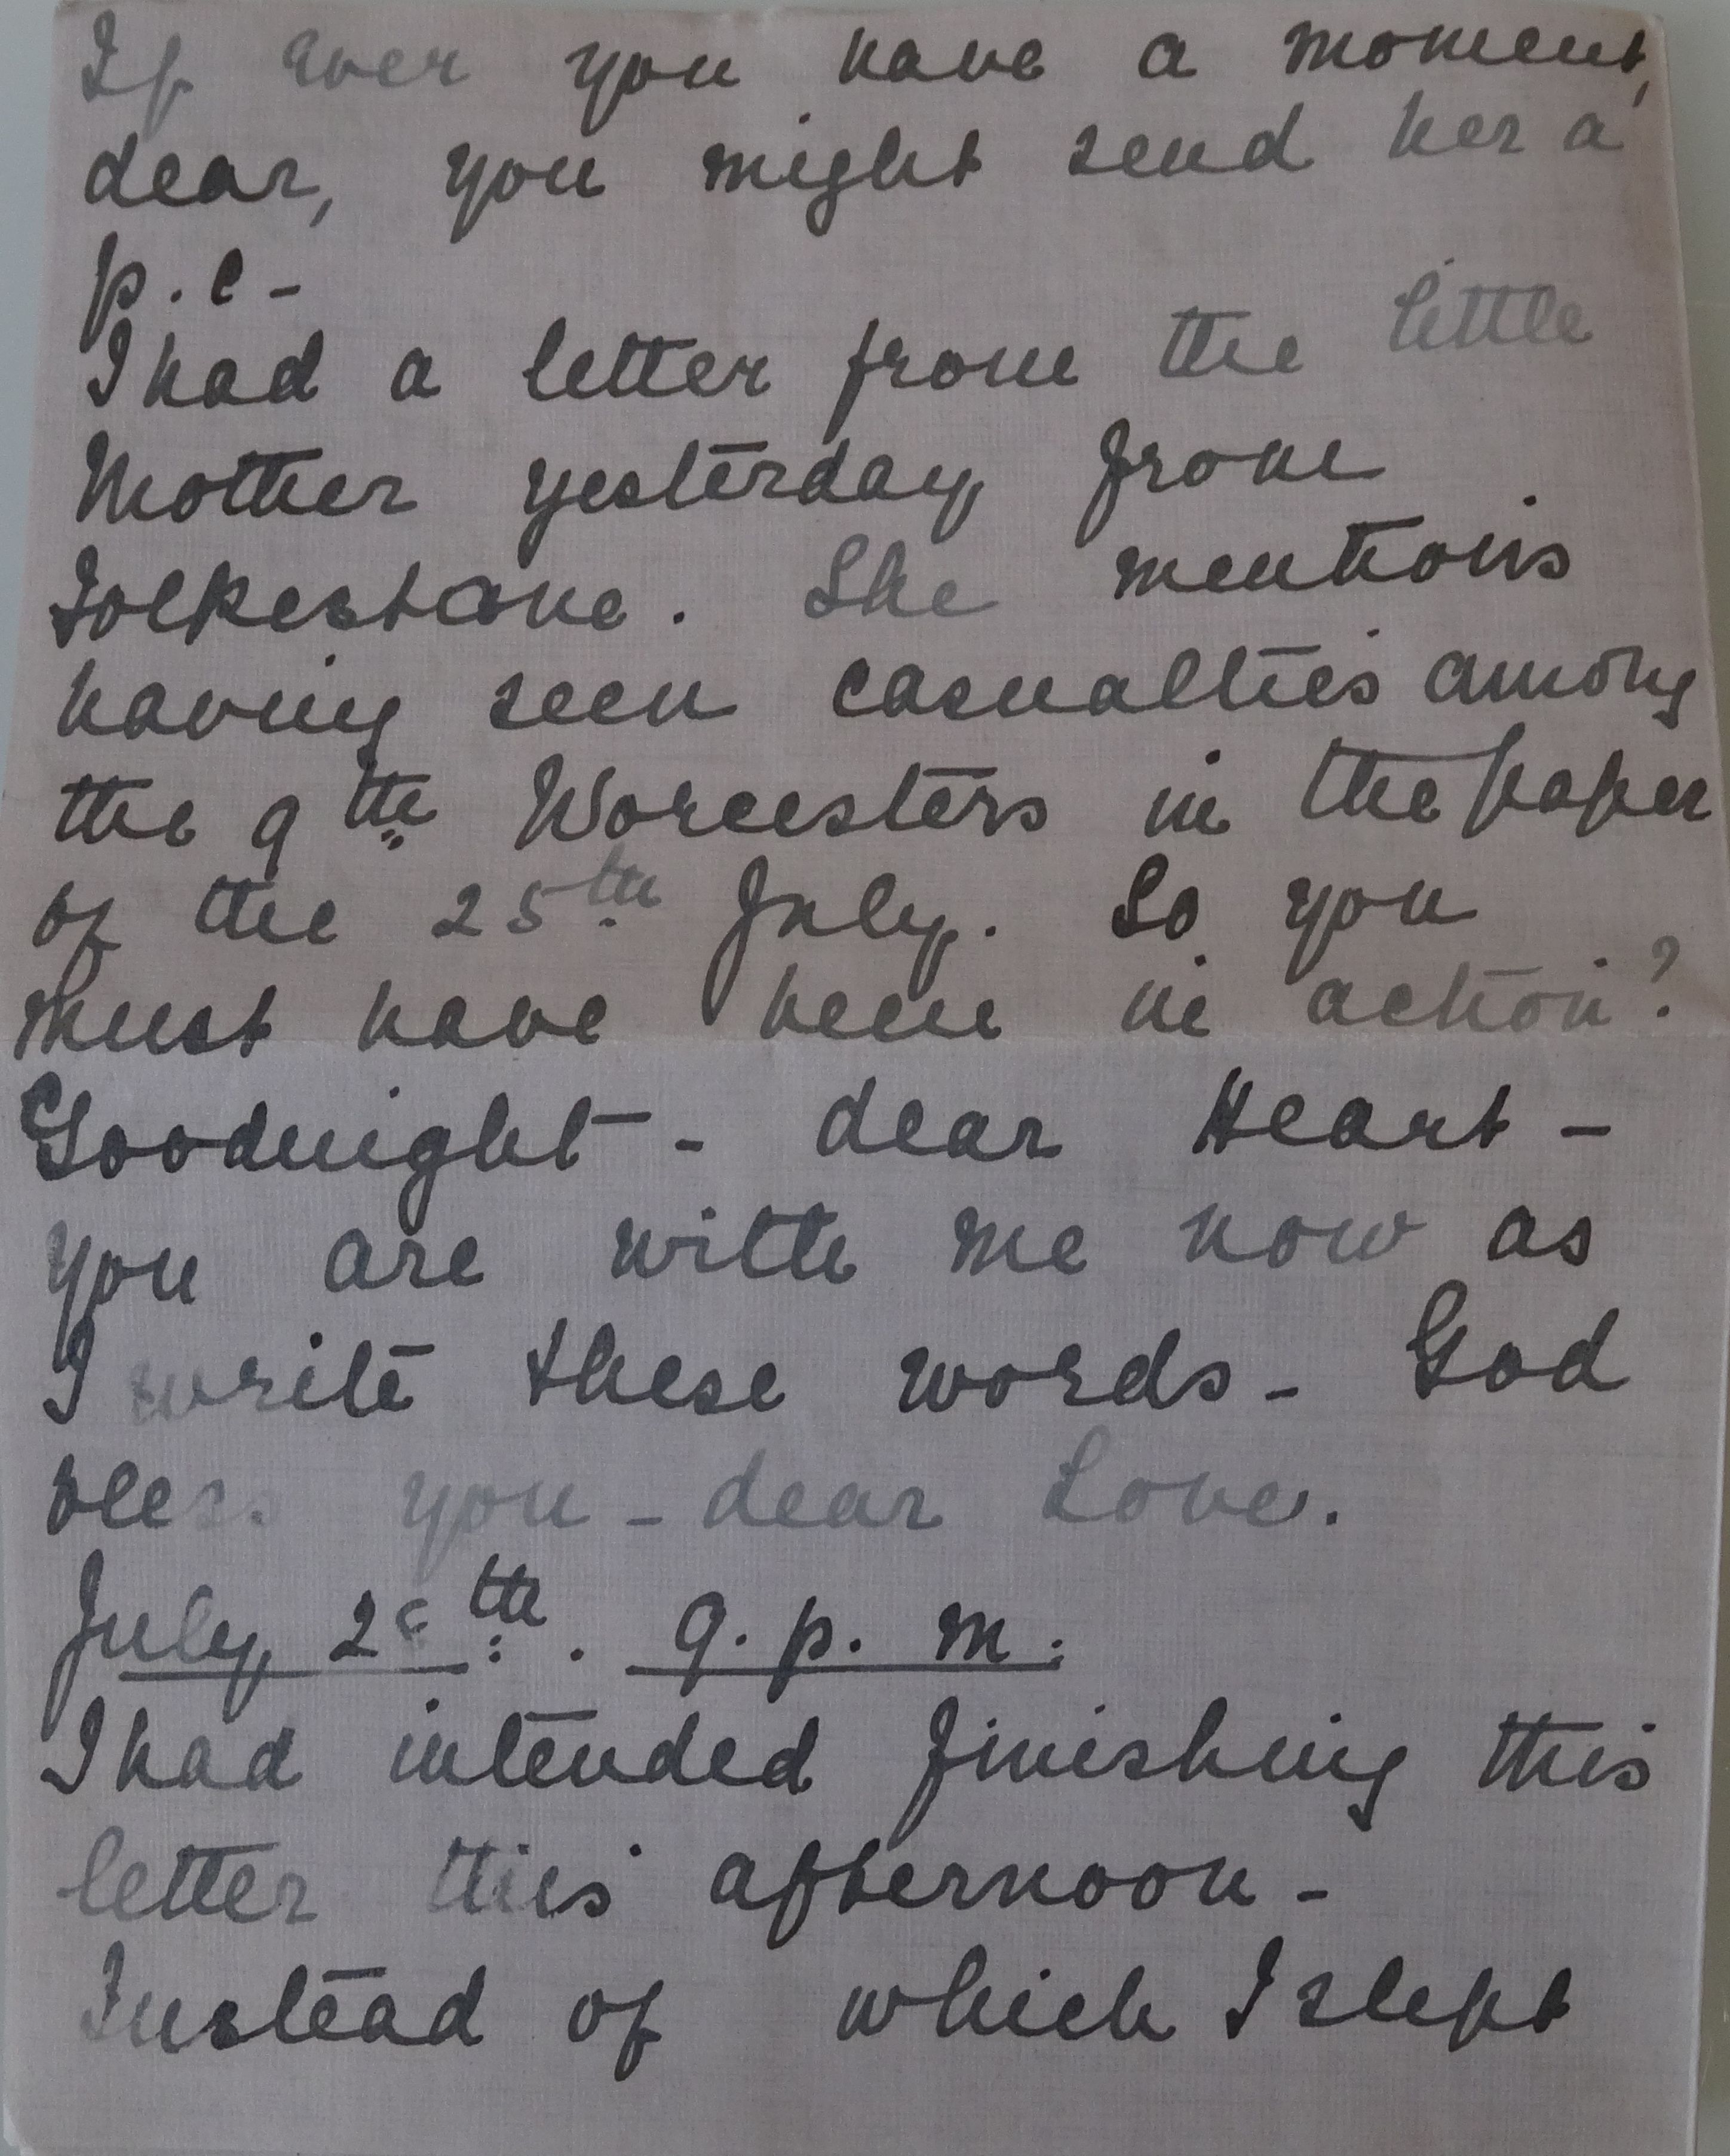 If ever you have a moment,
dear, you might send her a
p.c -
I had a letter from the little
Mother yesterday from
Folkestone. She mentions
having seen casualties among
the 9th Worcesters in the paper
of the 25th July. So you
must have been in action?
Goodnight - dear Heart -
you are with me now as
I write these words - God
bless you - dear Love.
July th. 9. p. m.
I had intended finishing this
letter this afternoon -
Instead of which I slept